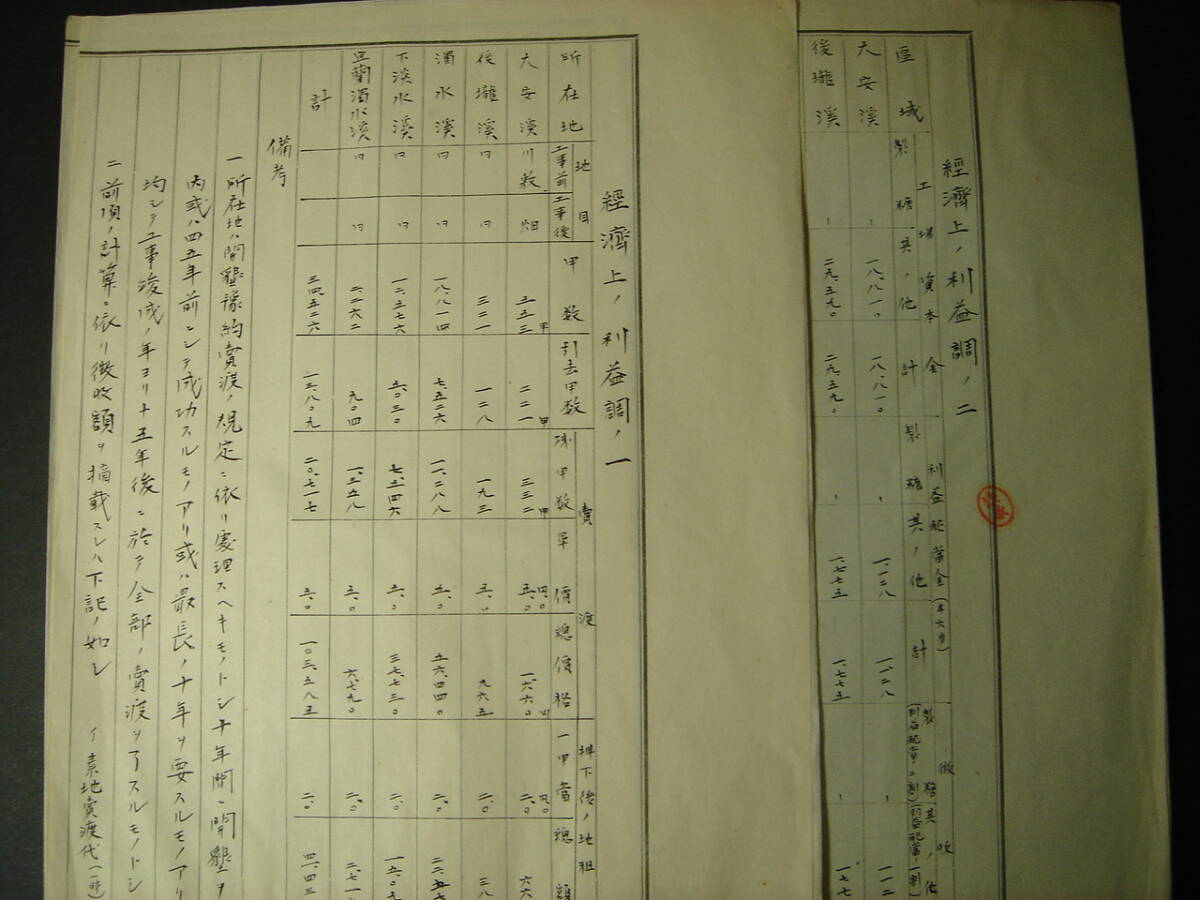 經濟上ノ利益調ノ二
區域
工場資本金
製糖
其ノ他
計
利益配當金(年六分)
製糖
其ノ他
計
徴收
製糖
其ノ他
大安溪
一八、八一〇
一八、八一〇
一、一二八
一、一二八
一一二
後壠溪
二九、五九〇
二九、五九〇
一、七七五
一、七七五
一七七
經濟上ノ利益調ノ一
所在地
地目
工事前
工事後
甲數
引去甲數
殘甲數
賣渡
單價
總價格
拂下後ノ地租
一甲當
總額
大安溪
川敷
畑
五五三甲
二二一甲
三三二甲
五、〇円〇
一、六六〇円
二、〇円〇
六六
後壠溪
〃
〃
三二一
一二八
一九三
五、〇
九六五
二、〇
三八
濁水溪
〃
〃
一八、八一四
七、五二六
一一、二八八
五、〇
五六、四四〇
二、〇
下淡水溪
〃
〃
一二、五七六
五、〇三〇
七、五四六
五、〇
三七、七三〇
二、〇
宜蘭濁水溪
〃
〃
二、二六二
九〇四
一、三五八
五、〇
六、七九〇
二、〇
計
三四、五二六
一三、八〇九
二〇、七一七
五、〇
一〇三、五八五
二、〇
備考
一 所在地ハ開墾豫約賣渡ノ規定ニ依リ處理スヘキモノトシ十年間ニ開墾ヲ
内或ハ四五年前ニシテ成功スルモノアリ或ハ最長ノ十年ヲ要スルモノアリ
均シテ工事竣成ノ年ヨリ十五年後ニ於テ全部ノ賣渡ヲ了スルモノトシ
二 前項ノ計算ニ依リ徴收額ヲ摘載スレハ下記ノ如シ
イ 素地賣渡代(一時)